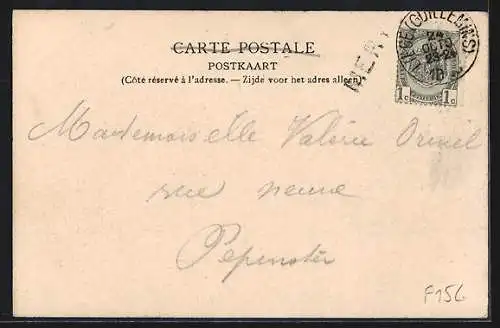 CARTE POSTALE
POSTKAART
(Côté réservé à l'adresse. — Zijde voor het adres alleen)
(GUILLEMINS)
24
OCT
1c 1c
Mademoiselle Valérie
rue neuve
Pepinster
F156